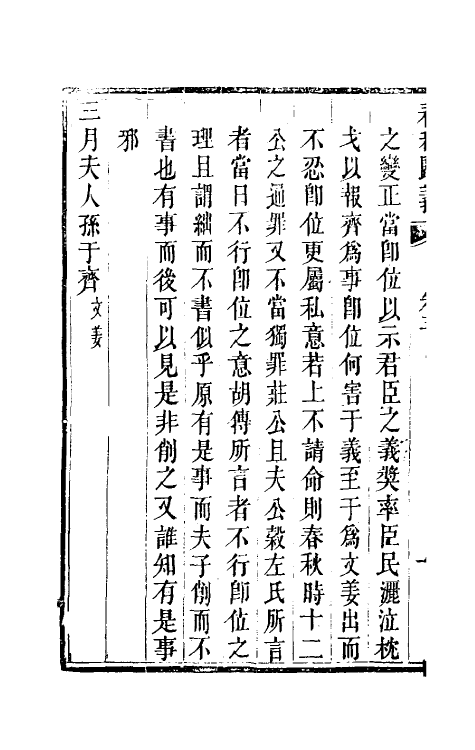 之變正當卽位以示君臣之義奬率臣民灑泣枕
戈以報齊爲事卽位何害于義至于爲文姜出而
不忍卽位更屬私意若上不請命則春秋時十二
公之通罪又不當獨罪莊公且夫公穀左氏所言
者當日不行卽位之意胡傳所言者不行卽位之
理且謂絀而不書似乎原有是事而夫子削而不
書也有事而後可以見是非削之又誰知有是事
邪
三月夫人孫于齊文姜